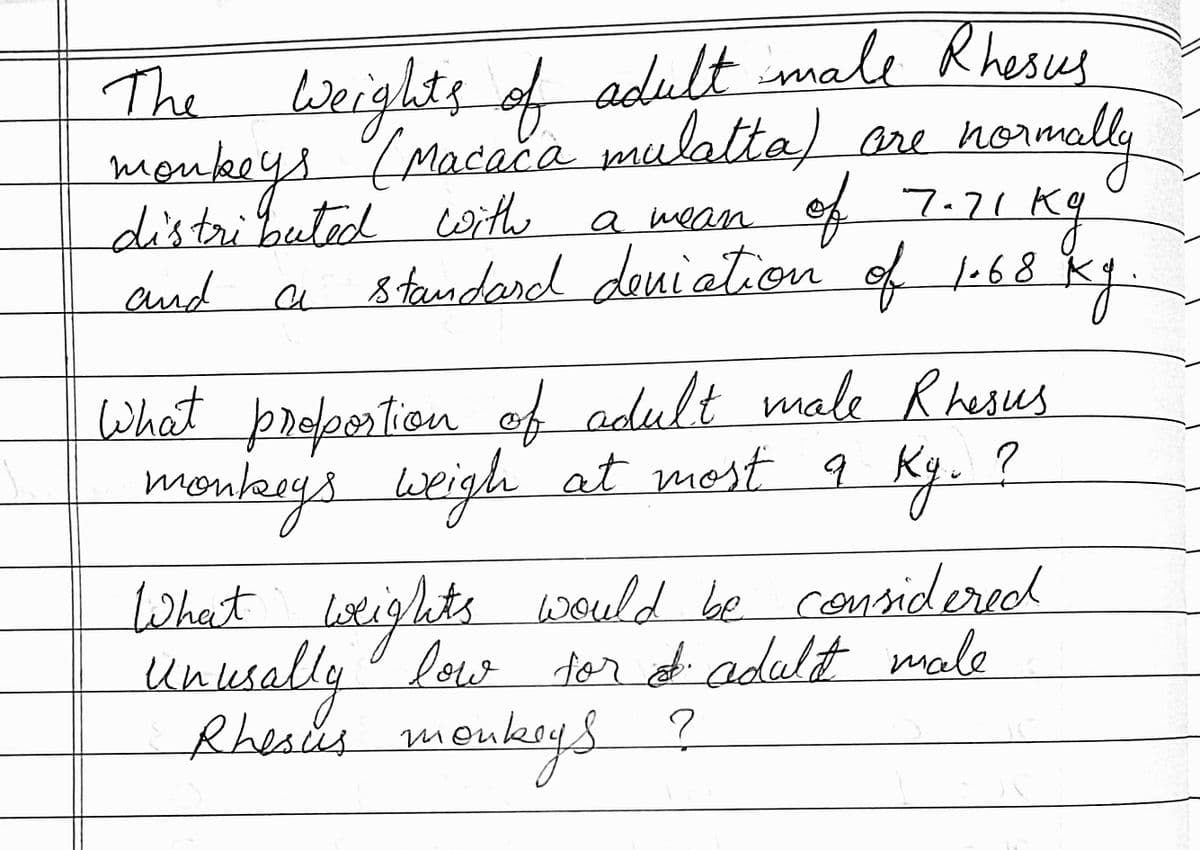 The weights of adult male Rhesus
monkeys (Macaca mulatta) are normally
distributed with a mean of 7.71 Kg
and a standard deviation of 1.68 Kg.
What proportion of adult male Rhesus
monkeys weigh at most 9 Kg. ?
What weights would be considered
Unusally low for adult male
Rhesus monkeys ?